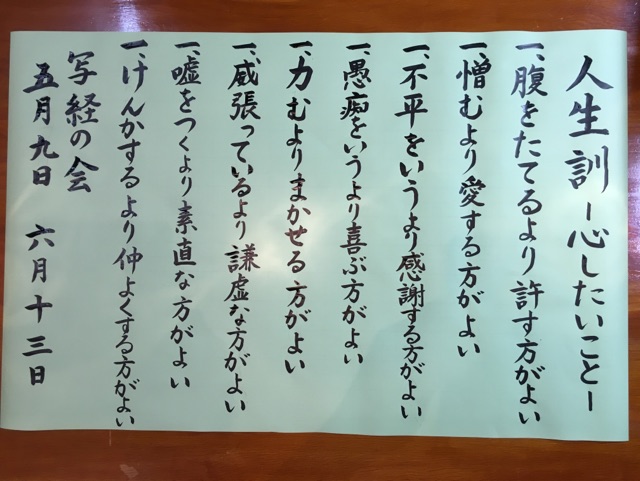 人生訓ー心したいことー
一、腹をたてるより許す方がよい
一、憎むより愛する方がよい
一、不平をいうより感謝する方がよい
一、愚痴をいうより喜ぶ方がよい
一、力むよりまかせる方がよい
一、威張っているより謙虚な方がよい
一、嘘をつくより素直な方がよい
一、けんかするより仲よくする方がよい
写経の会
五月九日 六月十三日